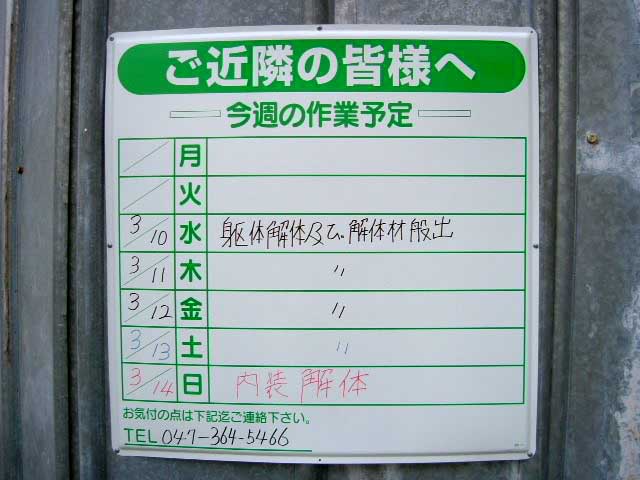 ご近隣の皆様へ
今週の作業予定
/ 月
/ 火
3/10 水 躯体解体及び解体材般出
3/11 木 〃
3/12 金 〃
3/13 土 〃
3/14 日 内装解体
お気付の点は下記迄ご連絡下さい。
TEL 047-364-5466